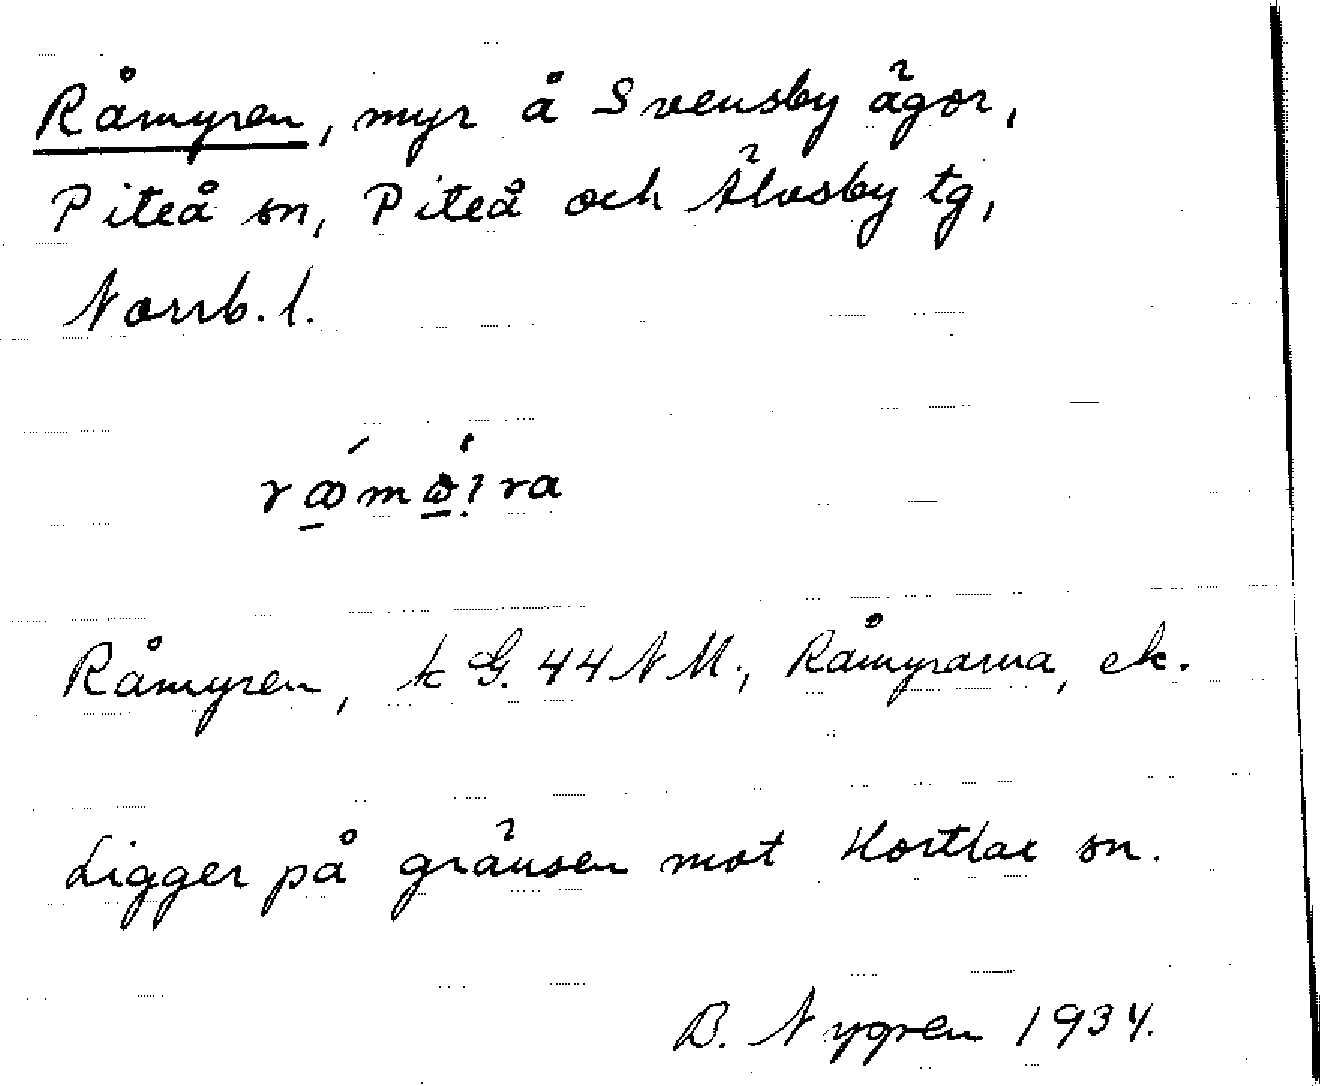 Råmyren, myr å Svensby ägor,
Piteå sn, Piteå och Älvsby tg,
Norrb. l.
Råmyren, k G. 44 N M., Råmyrarna, ek.
Ligger på gränsen mot Hortlax sn.
B. Nygren 1934.